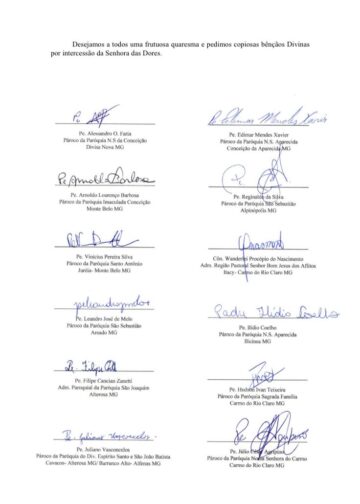 Desejamos a todos uma frutuosa quaresma e pedimos copiosas bênçãos Divinas
por intercessão da Senhora das Dores.
Pe. Alessandro O. Faria
Pároco da Paróquia N.S da Conceição
Divisa Nova MG
Pe. Edimar Mendes Xavier
Pe. Edimar Mendes Xavier
Pároco da Paróquia N.S. Aparecida
Conceição da Aparecida MG
Pe. Arnoldo Barbosa
Pe. Arnoldo Lourenço Barbosa
Pároco da Paróquia Imaculada Conceição
Monte Belo MG
Pe. Reginaldo da Silva
Pároco da Paróquia São Sebastião
Alpinópolis MG
Pe. Vinícius Pereira Silva
Pároco da Paróquia Santo Antônio
Juréia- Monte Belo MG
Côn. Wanderlei Procópio do Nascimento
Adm. Região Pastoral Senhor Bom Jesus dos Aflitos
Itacy- Carmo do Rio Claro MG
Pe. Leandro José de Melo
Pároco da Paróquia São Sebastião
Areado MG
Padre Ilídio Coelho
Pe. Ilídio Coelho
Pároco da Paróquia N.S. Aparecida
Ilicínea MG
Pe. Filipe
Pe. Filipe Cancian Zanetti
Adm. Paroquial da Paróquia São Joaquim
Alterosa MG
Pe. Heldon Ivan Teixeira
Pároco da Paróquia Sagrada Família
Carmo do Rio Claro MG
Pe. Juliano Vasconcelos
Pe. Juliano Vasconcelos
Pároco da Paróquia do Div. Espírito Santo e São João Batista
Cavacos- Alterosa MG/ Barranco Alto- Alfenas MG
Pe. Júlio César Agripino
Pároco da Paróquia Nossa Senhora do Carmo
Carmo do Rio Claro MG